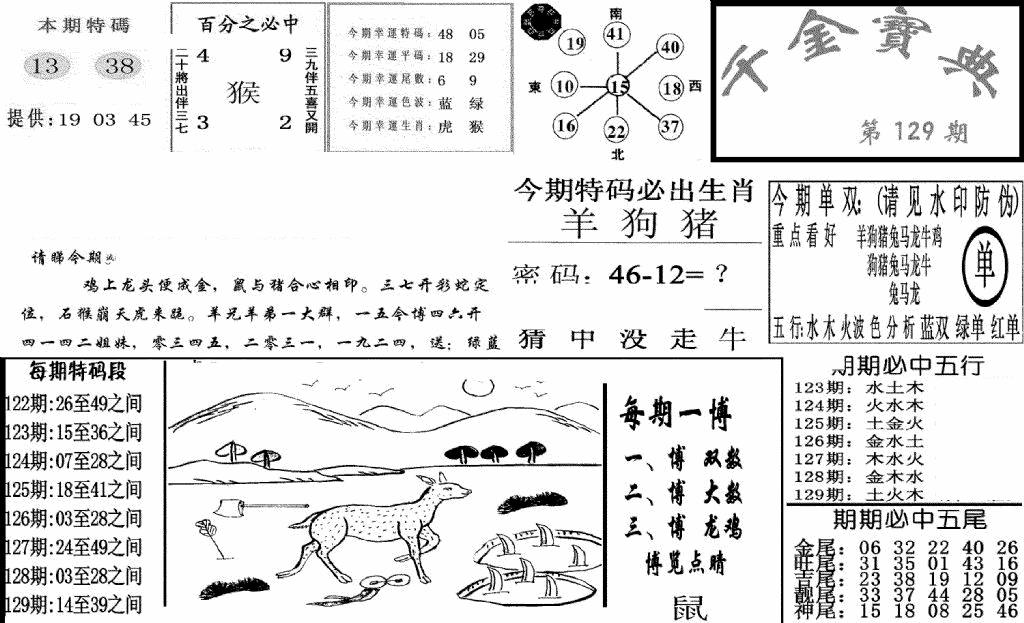 本期特碼
13 38
提供:19 03 45
百分之必中
二十將出伴三七
4 9
猴
3 2
三九伴五喜又開
今期幸運特碼: 48 05
今期幸運平碼: 18 29
今期幸運尾數: 6 9
今期幸運色波: 蓝 绿
今期幸運生肖: 虎 猴
南
19 41 40
東 10 15 18 西
16 22 37
北
金寶典
第 129 期
请睇今期
鸡上龙头便成金，鼠与猪合心相印。三七开彩蛇定
位，石猴崩天虎来临。羊兄羊弟一大群，一五今博四六开
四一四二姐妹，零三四五，二零三一，一九二四，送：绿蓝
今期特码必出生肖
羊 狗 猪
密码：46-12=？
猜 中 没 走 牛
今期单双:(请见水印防伪)
重点看好 羊狗猪兔马龙牛鸡
狗猪兔马龙牛
兔马龙
单
五行:水木火波色分析 蓝双 绿单 红单
每期特码段
122期:26至49之间
123期:15至36之间
124期:07至28之间
125期:18至41之间
126期:03至28之间
127期:24至49之间
128期:03至28之间
129期:14至39之间
每期一博
一、博 双数
二、博 大数
三、博 龙鸡
博览点睛
鼠
期期必中五行
123期：水土木
124期：火水木
125期：土金火
126期：金水土
127期：木水火
128期：金木水
129期：土火木
期期必中五尾
金尾：06 32 22 40 26
旺尾：31 35 01 43 16
吉尾：23 38 19 12 09
靓尾：33 37 44 28 05
神尾：15 18 08 25 46